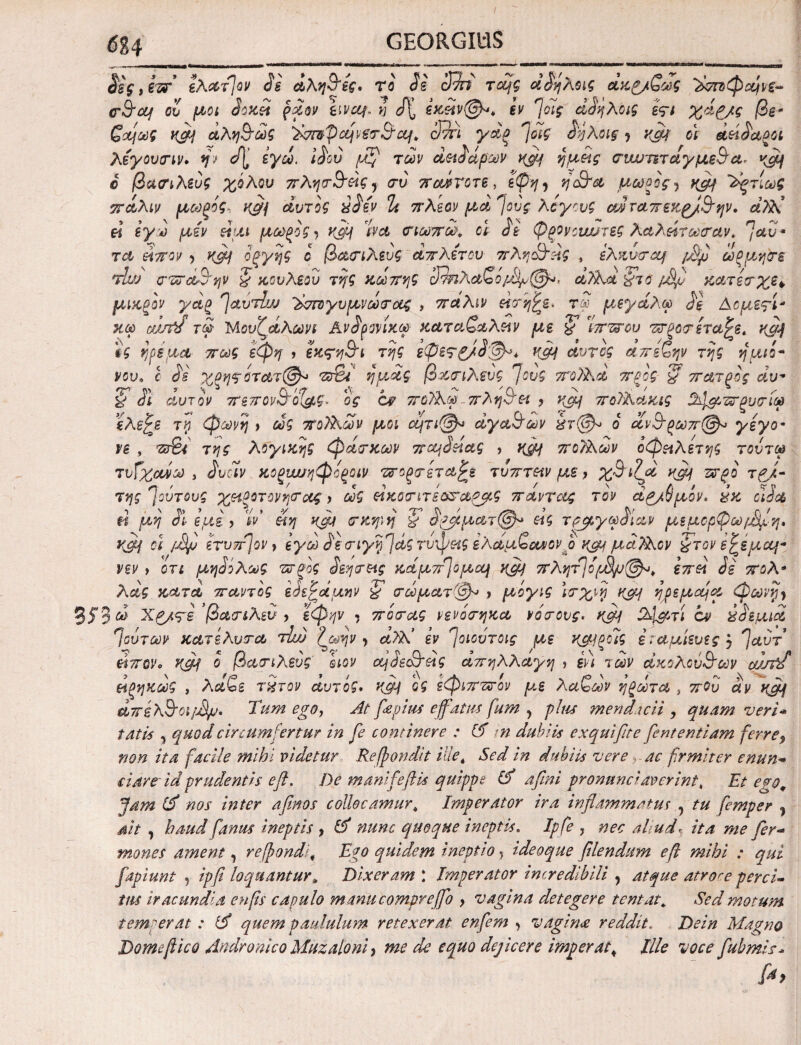 684 GEORGIUS
δὲς, ἐπ' ἔλαττον δὲ ἀληθές. τὸ δὲ ἐπὶ ταῖς ἀδήλοις ἀκριβῶς ἀποφαίνε-
σθαι οὔ μοι δοκεῖ ῥᾷον εἶναι. ἢ δ' ἐκεῖνος. ἐν τοῖς ἀδήλοις ἐστὶ χάρις βε-
βαίως καὶ ἀληθῶς ἀποφαίνεσθαι. ἐπὶ γὰρ τοῖς δήλοις, καὶ οἱ ἀείδαροι
λέγουσιν. ἦν δ' ἐγώ. ἰδοὺ μετὰ τῶν ἀειδάρων καὶ ἡμεῖς συντεταγμεθα. καὶ
ὁ βασιλεὺς χόλου πλησθεὶς, σὺ πάντοτε, ἔφη, ἦσθα μωρὸς, καὶ ἀρτίως
πάλιν μωρός. καὶ αὐτὸς οὐδέν τι πλέον μετὰ τοὺς λόγους ἀνταπεκρίθην. ἀλλ'
εἰ ἐγὼ μὲν εἰμι μωρὸς, καὶ ἵνα σιωπῶ. οἱ δὲ φρονοῦντες λαλείτωσαν. ταῦ-
τα εἶπον, καὶ ὀργῆς ὁ βασιλεὺς ἀπλέτου πλησθεὶς, ἑλκύσαι μὲν ὥρμησε
τὴν σπάθην τοῦ κουλεοῦ τῆς κώπης ἐπιλαβόμενος. ἀλλὰ τοῦτο μὲν κατέσχε.
μικρὸν γὰρ ταύτην ἀπογυμνώσας, πάλιν εἰσῆξε. τῷ μεγάλῳ δὲ Δομεστί-
κῳ αὐτοῦ τῷ Μουζάλωνι Ἀνδρονίκῳ καταβαλεῖν με τοῦ ἵππου προσέταξε. καὶ
ὃς ἠρέμα πως ἔφη, ἔκστηθι τῆς ἐφεστρίδος. καὶ αὐτὸς ἀπέβην τῆς ἡμιό-
νου. ὁ δὲ χρηστότατος περὶ ἡμᾶς βασιλεὺς τοὺς πολλὰ πρὸς τοῦ πατρὸς αὐ-
τοῦ δι αὐτὸν πεπονθότας. ὃς ἐν πολλῷ πλήθει, καὶ πολλάκις διαπρυσίῳ
ἔλεξε τῇ φωνῇ, ὡς πολλῶν μοι αἴτιος ἀγαθῶν οὗτος ὁ ἄνθρωπος γέγο-
νε, περὶ τῆς λογικῆς φάσκων παιδείας, καὶ πολλῶν ὀφειλέτης τούτῳ
τυγχάνω, δυσὶν κορυνηφόροιν προσέταξε τύπτειν με, χθιζὰ καὶ πρὸ τρί-
της τούτους χειροτονήσας, ὡς εἰκοσιτέσσαρας πάντας τὸν ἀριθμόν. οὐκ οἶδα
εἰ μὴ δι ἐμὲ, ἵν' εἴη καὶ σκηνὴ τοῦ δράματος εἰς τραγῳδίαν μεμορφωμένη.
καὶ οἱ μὲν ἔτυπτον, ἐγὼ δὲ σιγῇ τὰς τύψεις ἐλάμβανον. ὁ καὶ μᾶλλον τοῦτον ἐξέμαι-
νεν, ὅτι μηδόλως πρὸς δεήσεις κάμπτομαι καὶ πληττόμενος. ἐπεὶ δὲ πολ-
λὰς κατὰ παντὸς ἐδεξάμην τοῦ σώματος, μόγις ἰσχνῇ καὶ ἠρεμαίᾳ φωνῇ,
353 ὦ Χριστὲ βασιλεῦ, ἔφην, πόσας νενόσηκα νόσους. καὶ διατί ἐν οὐδεμιᾷ
τούτων κατέλυσα τὴν ζωὴν, ἀλλ' ἐν τοιούτοις με καιροῖς ἐταμίευες; ταῦτ'
εἶπον. καὶ ὁ βασιλεὺς οἷον αἰδεσθεὶς ἀπηλλάγη, ἑνὶ τῶν ἀκολούθων αὐτοῦ
εἰρηκὼς, λάβε τοῦτον αὐτός. καὶ ὃς ἔφιππόν με λαβὼν ἠρώτα, ποῦ ἂν καὶ
ἀπέλθοιμεν. Tum ego, At sæpius effatus sum, plus mendacii, quam veri-
tatis, quod circumfertur in se continere: & in dubiis exquisite sententiam ferre,
non ita facile mihi videtur Respondit ille. Sed in dubiis vere, ac firmiter enun-
ciare id prudentis est. De manifestis quippe & asini pronunciaverint. Et ego.
Jam & nos inter asinos collocamur. Imperator ira inflammatus, tu semper,
ait, haud sanus ineptis, & nunc quoque ineptis. Ipse, nec aliud, ita me ser-
mones ament, respondi. Ego quidem ineptio, ideoque silendum est mihi: qui
sapiunt, ipsi loquantur. Dixeram: Imperator incredibili, atque atroce perci-
tus iracundia ensis capulo manu compresso, vagina detegere tentat. Sed motum
temperat: & quem paululum retexerat ensem, vaginæ reddit. Dein Magno
Domestico Andronico Muzaloni, me de equo dejicere imperat. Ille voce submis-
sa,